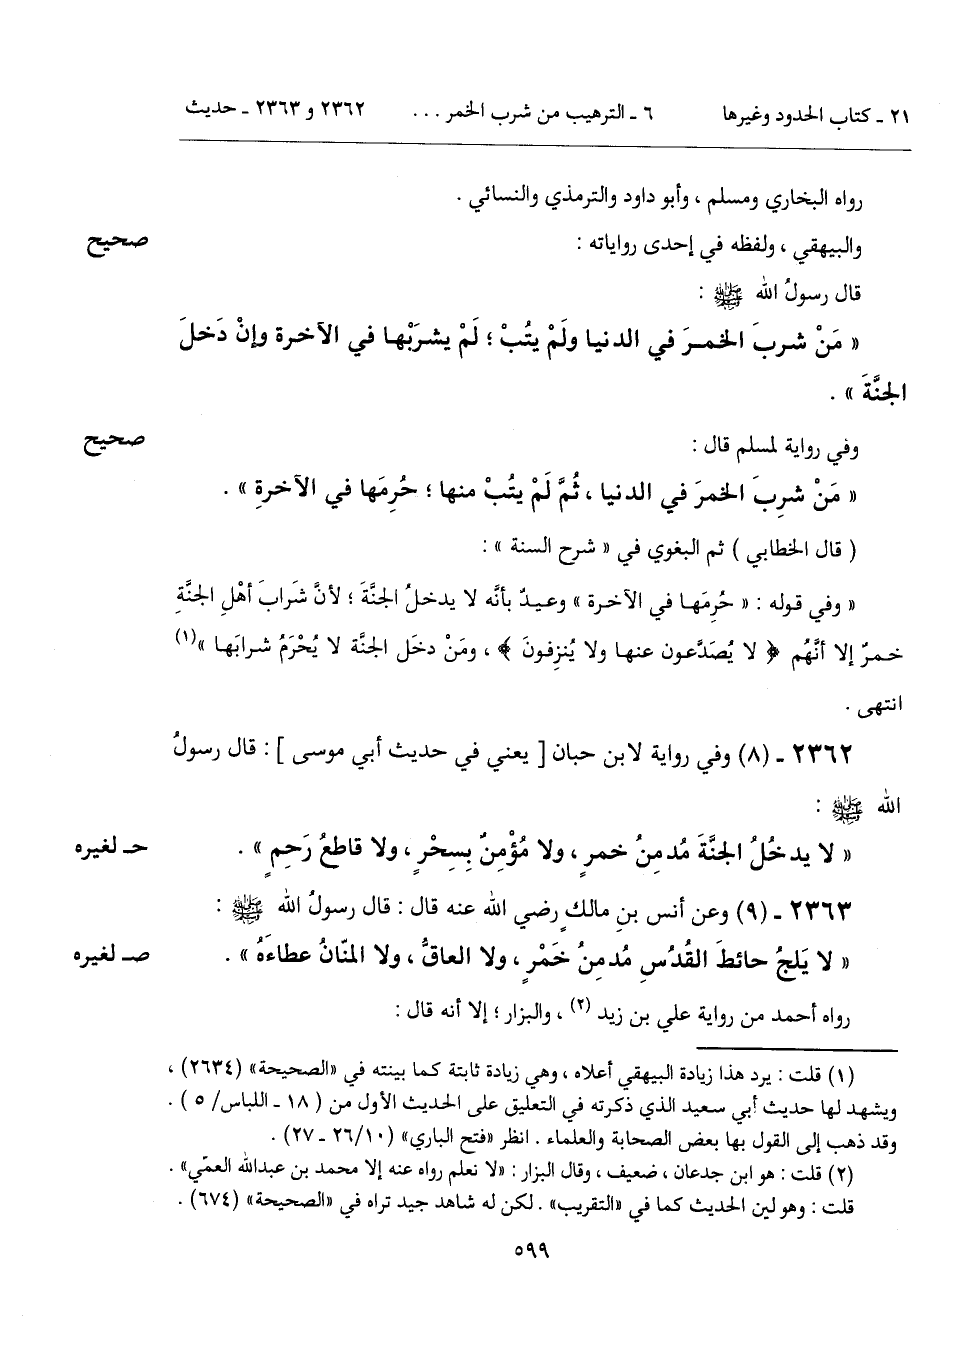 ٢١ ـ كتاب الحدود وغيرها ٦ ـ الترهيب من شرب الخمر ... ٢٣٦٢ و ٢٣٦٣ ـ حديث
رواه البخاري ومسلم ، وأبو داود والترمذي والنسائي .
والبيهقي ، ولفظه في إحدى رواياته : صحيح
قال رسولُ الله ﷺ :
« مَنْ شربَ الخمـرَ في الدنيا ولَمْ يتُبْ ؛ لَمْ يشرَبْها في الآخرة وإنْ دَخلَ
الجنَّةَ » .
وفي رواية لمسلم قال : صحيح
« مَنْ شرِبَ الخمرَ في الدنيا ، ثُمَّ لَمْ يتُبْ منها ؛ حُرِمَها في الآخرةِ » .
( قال الخطابي ) ثم البغوي في « شرح السنة » :
« وفي قوله : « حُرِمَها في الآخرة » وعيدٌ بأنَّه لا يدخلُ الجنَّةَ ؛ لأنَّ شَرابَ أهْلِ الجنَّةِ
خمرٌ إلا أنَّهُم ﴿ لا يُصَدَّعون عنها ولا يُنزِفونَ ﴾ ، ومَنْ دخَل الجنَّة لا يُحْرَمُ شرابَها »(١)
انتهى .
٢٣٦٢ ـ (٨) وفي رواية لابن حبان [ يعني في حديث أبي موسى ] : قال رسولُ
الله ﷺ :
« لا يدخُلُ الجنَّةَ مُدمِنُ خمرٍ ، ولا مُؤْمِنٌ بِسِحْرٍ ، ولا قاطعُ رَحِمٍ » . حـ لغيره
٢٣٦٣ ـ (٩) وعن أنس بنِ مالكٍ رضي الله عنه قال : قال رسولُ الله ﷺ :
« لا يَلجُ حائطَ القُدُسِ مُدمِنُ خَمْرٍ ، ولا العاقُّ ، ولا المنّانُ عطاءَهُ » . صـ لغيره
رواه أحمد من رواية علي بن زيد (٢) ، والبزار ؛ إلا أنه قال :
(١) قلت : يرد هذا زيادة البيهقي أعلاه ، وهي زيادة ثابتة كما بينته في «الصحيحة» (٢٦٣٤) ،
ويشهد لها حديث أبي سعيد الذي ذكرته في التعليق على الحديث الأول من ( ١٨ ـ اللباس/ ٥ ) .
وقد ذهب إلى القول بها بعض الصحابة والعلماء . انظر «فتح الباري» (١٠/ ٢٦ ـ ٢٧) .
(٢) قلت : هو ابن جدعان ، ضعيف ، وقال البزار : «لا نعلم رواه عنه إلا محمد بن عبدالله العمّي» .
قلت : وهو لين الحديث كما في «التقريب» . لكن له شاهد جيد تراه في «الصحيحة» (٦٧٤) .
٥٩٩